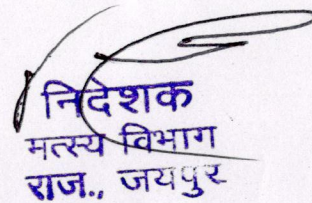 निदेशक
मत्स्य विभाग
राज., जयपुर